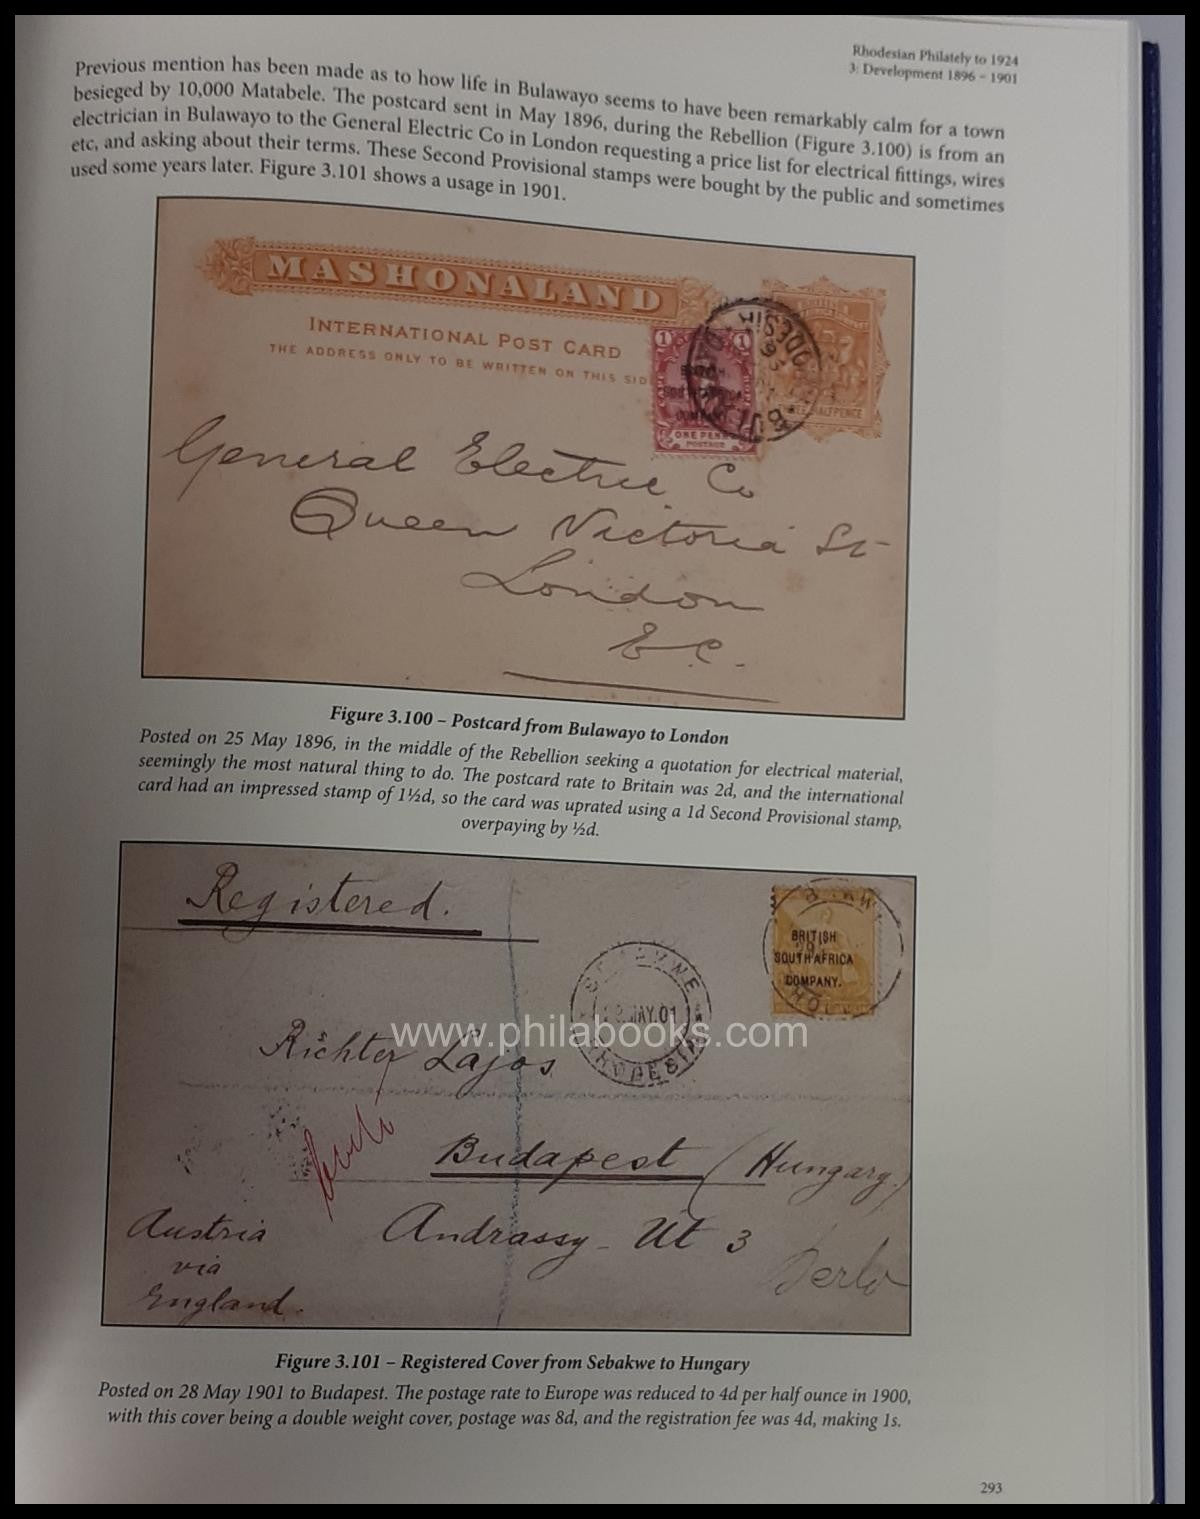 Rhodesian Philately to 1924
3: Development 1896 – 1901
Previous mention has been made as to how life in Bulawayo seems to have been remarkably calm for a town
besieged by 10,000 Matabele. The postcard sent in May 1896, during the Rebellion (Figure 3.100) is from an
electrician in Bulawayo to the General Electric Co in London requesting a price list for electrical fittings, wires
etc, and asking about their terms. These Second Provisional stamps were bought by the public and sometimes
used some years later. Figure 3.101 shows a usage in 1901.
MASHONALAND
INTERNATIONAL POST CARD
THE ADDRESS ONLY TO BE WRITTEN ON THIS SID
1 1
SOUTH AFRICA
COMPANY
ONE PENNY
POSTAGE
HALFPENCE
General Electric Co
Queen Victoria St
London
E.C.
Figure 3.100 – Postcard from Bulawayo to London
Posted on 25 May 1896, in the middle of the Rebellion seeking a quotation for electrical material,
seemingly the most natural thing to do. The postcard rate to Britain was 2d, and the international
card had an impressed stamp of 1½d, so the card was uprated using a 1d Second Provisional stamp,
overpaying by ½d.
Registered.
BRITISH
SOUTH AFRICA
COMPANY.
MAY.01
RHODESIA
www.philabooks.com
Richter Lajos
Budapest (Hungary.)
Andrassy - Ut 3
Austria
via
England.
Figure 3.101 – Registered Cover from Sebakwe to Hungary
Posted on 28 May 1901 to Budapest. The postage rate to Europe was reduced to 4d per half ounce in 1900,
with this cover being a double weight cover, postage was 8d, and the registration fee was 4d, making 1s.
293